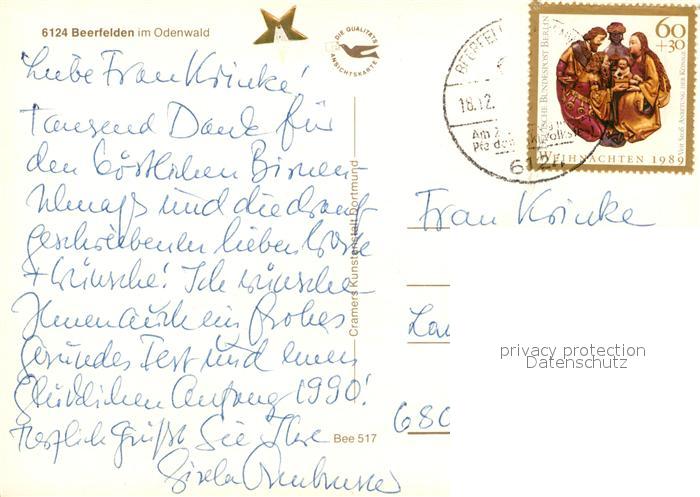 6124 Beerfelden im Odenwald
DIE QUALITÄTS
ANSICHTSKARTE
Liebe Frau Krinke!
Tausend Dank für
den köstlichen Birnen-
schnaps und die darauf
geschriebenen lieben Worte
+ Wünsche! Ich wünsche
Ihnen auch ein frohes
gesundes Fest und einen
glücklichen Anfang 1990!
Herzlich grüßt Sie Ihre
Gisela
Bee 517
Cramers Kunstanstalt Dortmund
BEERFEL
18.12.
Am
6124
DEUTSCHE BUNDESPOST BERLIN
60
+30
Veit Stoß Anbetung der Könige
WEIHNACHTEN 1989
Frau Krinke
680
privacy protection
Datenschutz